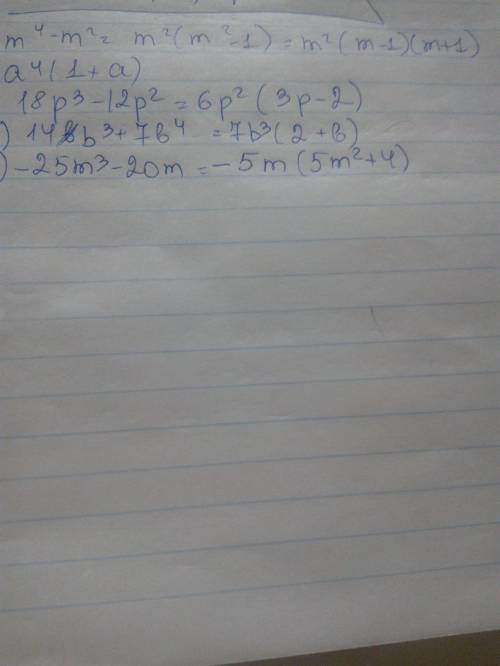 m⁴-m²= m²(m²-1) = m²(m-1)(m+1)
a⁴(1+a)
18p³-12p²=6p²(3p-2)
) 14b³+7b⁴ =7b³(2+b)
) -25m³-20m=-5m(5m²+4)